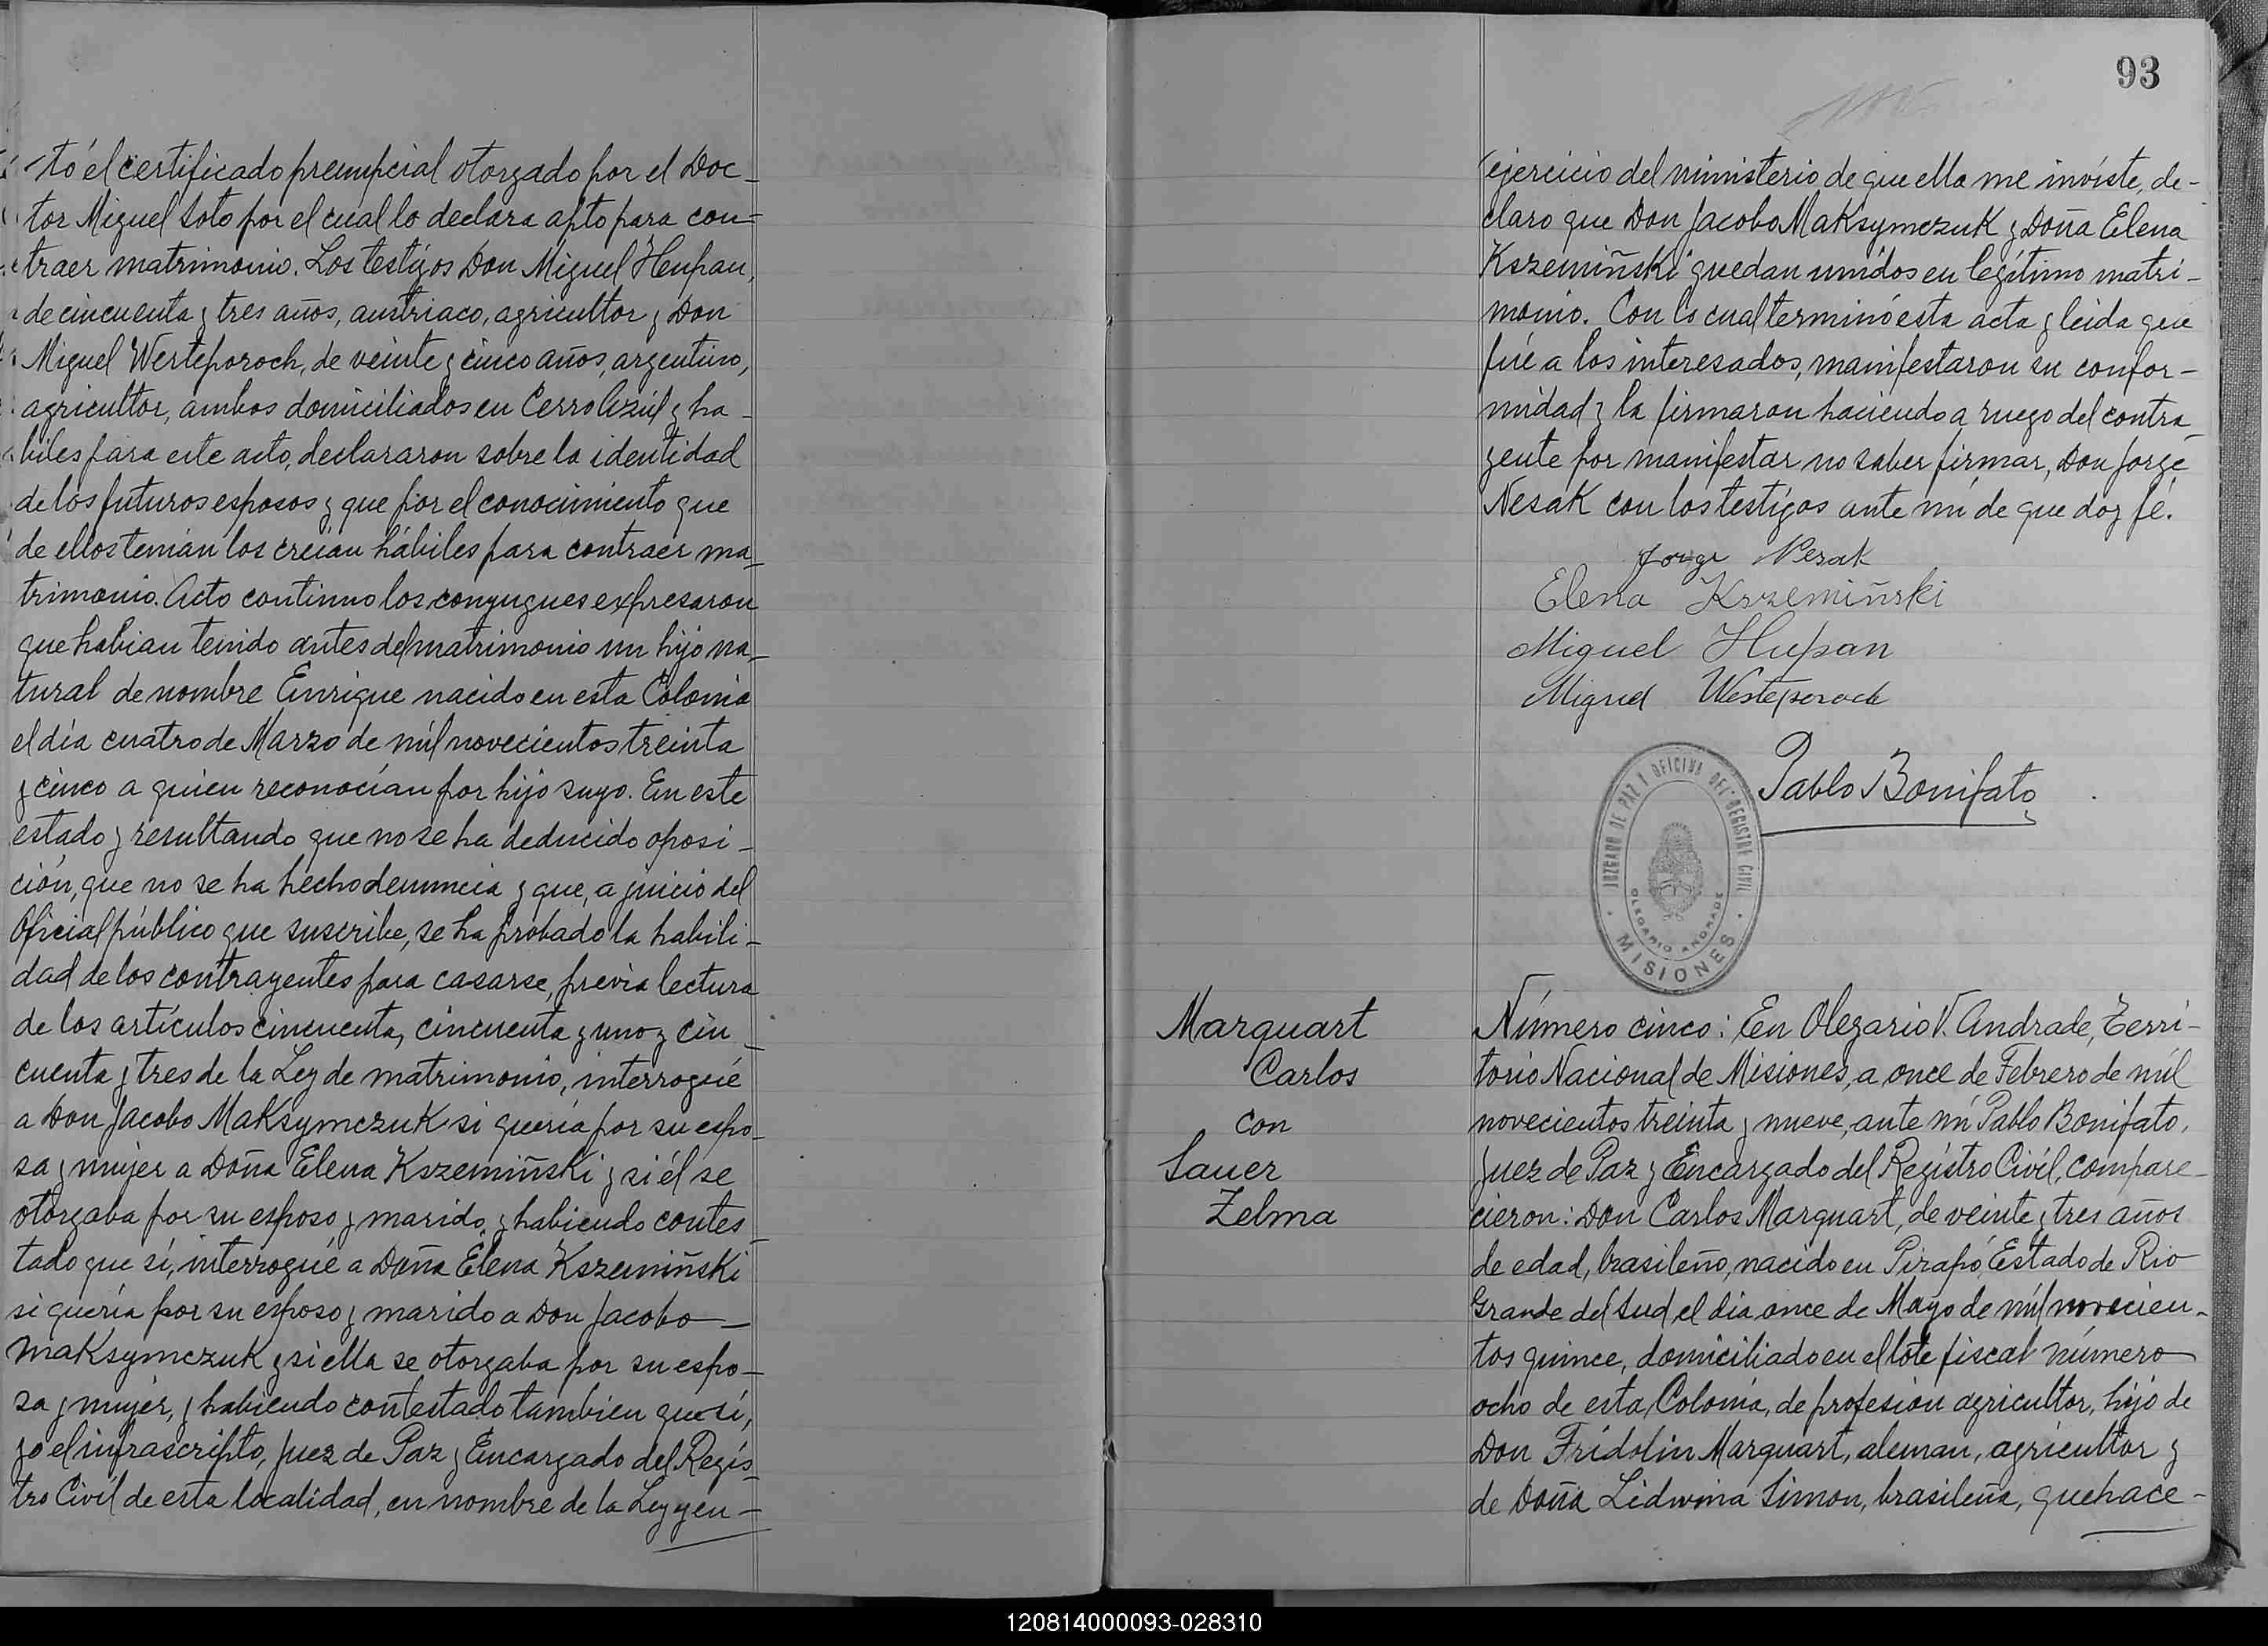 tó el certificado prenupcial otorgado por el Doc-
tor Miguel Soto por el cual lo declara apto para con=
traer matrimonio. Los testigos Don Miguel Hupan,
de cincuenta y tres años, austriaco, agricultor y Don
Miguel Werteporoch, de veinte y cinco años, argentino,
agricultor, ambos domiciliados en Cerro Azúl y ha-
biles para este acto, declararon sobre la identidad
de los futuros esposos y que por el conocimiento que
de ellos tenian los creian hábiles para contraer ma-
trimonio. Acto continuo los conyugues expresaron
que habian tenido antes del matrimonio un hijo na-
tural de nombre Enrique nacido en esta Colonia
el día cuatro de Marzo de mil novecientos treinta
y cinco a quien reconocían por hijo suyo. En este
estado y resultando que no se ha deducido oposi-
ción, que no se ha hecho denuncia y que, a juicio del
Oficial público que suscribe, se ha probado la habili-
dad de los contrayentes para casarse, previa lectura
de los artículos cincuenta, cincuenta y uno y cin-
cuenta y tres de la Ley de matrimonio, interrogué
a Don Jacobo Maksymczuk si quería por su espo-
sa y mujer a Doña Elena Kszemiñski y si él se
otorgaba por su esposo y marido, y habiendo contes-
tado que sí, interrogué a Doña Elena Kszemiñski
si quería por su esposo y marido a Don Jacobo —
Maksymczuk y si ella se otorgaba por su espo-
sa y mujer, y habiendo contestado tambien que sí,
yo el infrascripto, Juez de Paz y Encargado del Regis-
tro Civil de esta localidad, en nombre de la Ley y en —
93
ejercicio del ministerio de que ella me inviste, de-
claro que Don Jacobo Maksymczuk y Doña Elena
Kszemiñski quedan unidos en legítimo matri-
monio. Con lo cual terminó esta acta y leida que
fué a los interesados, manifestaron su confor-
midad y la firmaron haciendo a ruego del contra-
yente por manifestar no saber firmar, Don Jorge
Nesak con los testigos ante mí de que doy fé.
Jorge Nesak
Elena Krzemiñski
Miguel Hupan
Miguel Westeporoch
Pablo Bonifato
JUZGADO DE PAZ Y OFICINA DEL REGISTRO CIVIL
OLEGARIO ANDRADE
MISIONES
Marquart
Carlos
con
Sauer
Zelma
Número cinco: En Olegario V. Andrade, Terri-
torio Nacional de Misiones, a once de Febrero de mil
novecientos treinta y nueve, ante mí Pablo Bonifato,
Juez de Paz y Encargado del Registro Civil, compare-
cieron: Don Carlos Marquart, de veinte y tres años
de edad, brasileño, nacido en Pirapó, Estado de Rio
Grande del Sud el día once de Mayo de mil novecien-
tos quince, domiciliado en el lote fiscal número
ocho de esta Colonia, de profesión agricultor, hijo de
Don Fridolin Marquart, aleman, agricultor y
de Doña Lidwina Simon, brasileña, quehace-
120814000093-028310